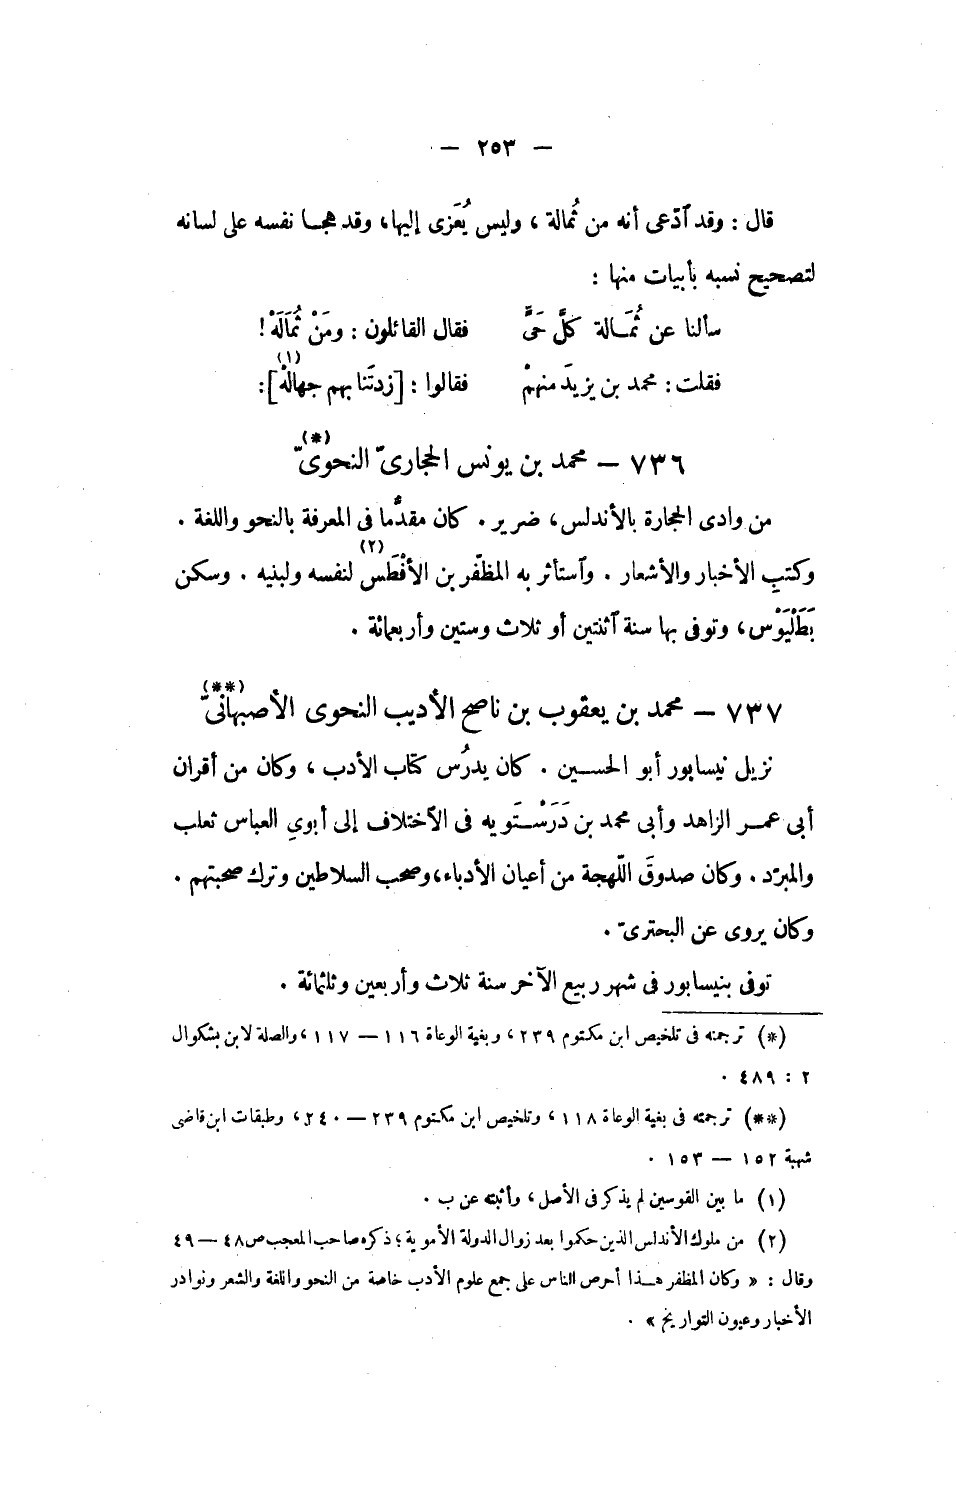 — ٢٥٣ —
قال : وقد ٱدّعى أنه من ثُمالة ، وليس يُعَزى إليها، وقد هجا نفسه على لسانه
لتصحيح نسبه بأبيات منها :
سألنا عن ثُمَالة كلَّ حَىٍّ فقال القائلون : ومَنْ ثُمَالَهْ !
فقلت : محمد بن يزيدَ منهمْ فقالوا : [زدتَنا بهم جهالهْ](١) :
٧٣٦ — محمد بن يونس الحجارىّ النحوىّ(*)
من وادى الحجارة بالأندلس، ضرير. كان مقدَّما فى المعرفة بالنحو واللغة .
وكتبِ الأخبار والأشعار . وٱستأثر به المظفّر بن الأفْطَس(٢) لنفسه ولبنيه . وسكن
بَطَلْيَوْس، وتوفى بها سنة ٱثنتين أو ثلاث وستين وأربعمائة .
٧٣٧ — محمد بن يعقوب بن ناصح الأديب النحوى الأصبهانىّ(**)
نزيل نيسابور أبو الحسين . كان يدرُس كتاب الأدب ، وكان من أقران
أبى عمر الزاهد وأبى محمد بن دَرَسْتَويه فى الٱختلاف إلى أبوىِ العباس ثعلب
والمبرّد . وكان صدوقَ اللّهجة من أعيان الأدباء، وصحب السلاطين وترك صحبتهم .
وكان يروى عن البحترىّ .
توفى بنيسابور فى شهر ربيع الآخر سنة ثلاث وأربعين وثلثمائة .
(*) ترجمته فى تلخيص ابن مكتوم ٢٣٩ ، وبغية الوعاة ١١٦ — ١١٧ ، والصلة لابن بشكوال
٢ : ٤٨٩ .
(**) ترجمته فى بغية الوعاة ١١٨ ، وتلخيص ابن مكتوم ٢٣٩ — ٢٤٠ ، وطبقات ابن قاضى
شهبة ١٥٢ — ١٥٣ .
(١) ما بين القوسين لم يذكر فى الأصل ، وأثبته عن ب .
(٢) من ملوك الأندلس الذين حكموا بعد زوال الدولة الأموية ؛ ذكره صاحب المعجب ص ٤٨ — ٤٩
وقال : « وكان المظفر هذا أحرص الناس على جمع علوم الأدب خاصة من النحو واللغة والشعر ونوادر
الأخبار وعيون التواريخ » .